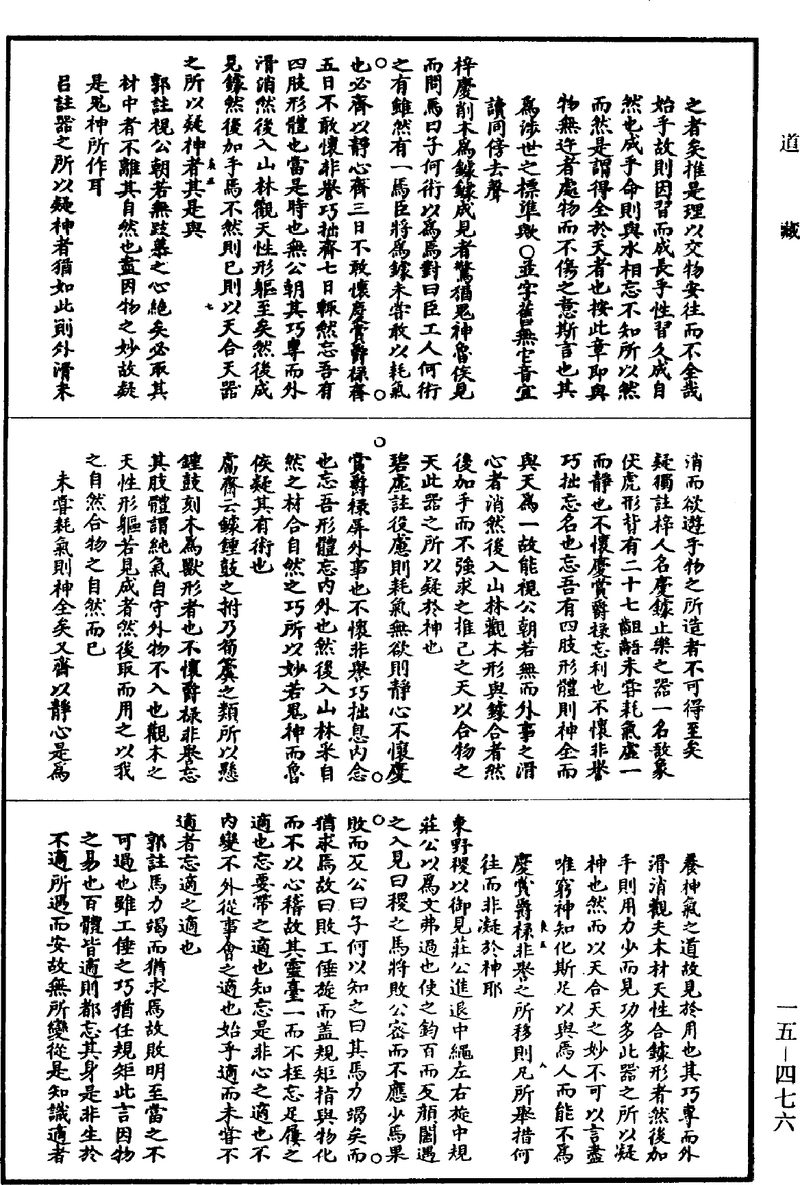 道藏
之者矣推是理以交物安往而不全哉
始乎故則因習而成長乎性習久成自
然也成乎命則與水相忘不知所以然
而然是謂得全於天者也按此章即與
物無迕者處物而不傷之意斯言也其
為涉世之標準歟○並字舊無它音宜
讀同傍去聲
梓慶削木為鐻鐻成見者驚猶鬼神魯侯見
而問焉曰子何術以為焉對曰臣工人何術
之有雖然有一焉臣將為鐻未嘗敢以耗氣
也必齊以靜心齊三日不敢懷慶賞爵祿齊
五日不敢懷非譽巧拙齊七日輒然忘吾有
四肢形體也當是時也無公朝其巧專而外
滑消然後入山林觀天性形軀至矣然後成
見鐻然後加手焉不然則已則以天合天器
之所以疑神者其是與
郭註視公朝若無跂慕之心絕矣必取其
材中者不離其自然也盡因物之妙故疑
是鬼神所作耳
呂註器之所以疑神者猶如此則外滑未
消而欲遊乎物之所造者不可得至矣
疑獨註梓人名慶鐻止樂之器一名敔象
伏虎形背有二十七齟齬未嘗耗氣虛一
而靜也不懷慶賞爵祿忘利也不懷非譽
巧拙忘名也忘吾有四肢形體則神全而
與天為一故能視公朝若無而外事之滑
心者消然後入山林觀木形與鐻合者然
後加手而不強求之推己之天以合物之
天此器之所以疑於神也
碧虛註役慮則耗氣無欲則靜心不懷慶
賞爵祿屏外事也不懷非譽巧拙息内念
也忘吾形體忘内外也然後入山林采自
然之材合自然之巧所以妙若鬼神而魯
侯疑其有術也
鬳齋云鐻鍾鼓之柎乃筍簴之類所以懸
鍾鼓刻木為獸形者也不懷爵祿非譽忘
其肢體謂純氣自守外物不入也觀木之
天性形軀若見成者然後取而用之以我
之自然合物之自然而已
未嘗耗氣則神全矣又齊以靜心是為
養神氣之道故見於用也其巧專而外
滑消觀夫木材天性合鐻形者然後加
手則用力少而見功多此器之所以疑
神也然而以天合天之妙不可以言盡
唯窮神知化斯足以與焉人而能不為
慶賞爵祿非譽之所移則凡所舉措何
往而非凝於神耶
東野稷以御見莊公進退中繩左右旋中規
莊公以為文弗過也使之鈎百而反顔闔遇
之入見曰稷之馬將敗公密而不應少焉果
敗而反公曰子何以知之曰其馬力竭矣而
猶求焉故曰敗工倕旋而蓋規矩指與物化
而不以心稽故其靈臺一而不桎忘足屨之
適也忘要帶之適也知忘是非心之適也不
内變不外從事會之適也始乎適而未嘗不
適者忘適之適也
郭註馬力竭而猶求焉故敗明至當之不
可過也雖工倕之巧猶任規矩此言因物
之易也百體皆適則都忘其身是非生於
不適所遇而安故無所變從是知識適者
一五—四七六